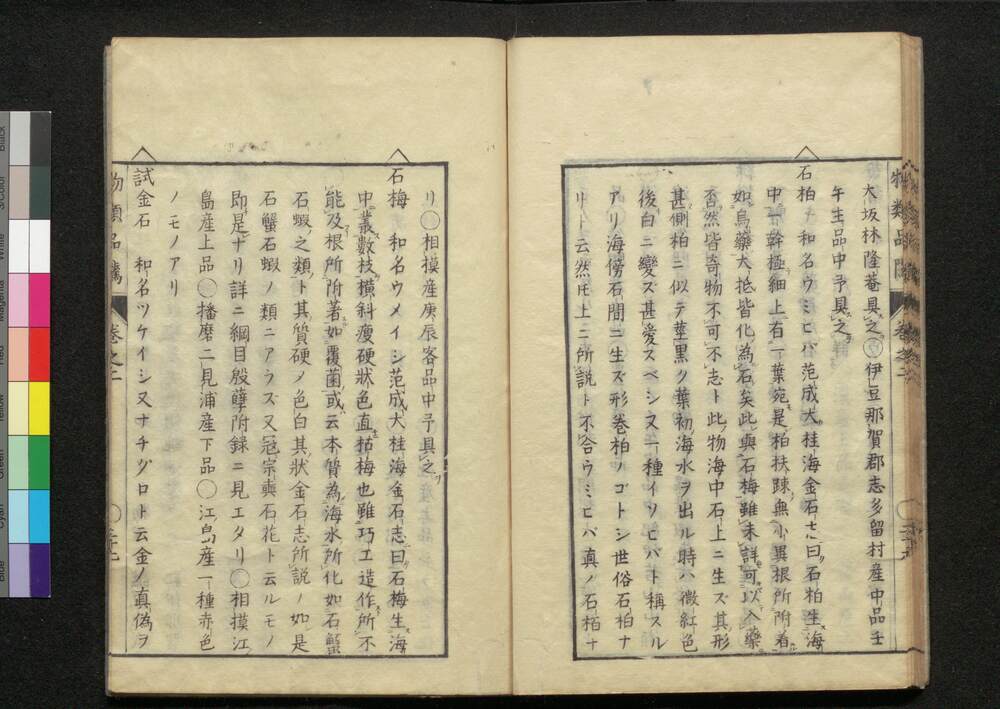 大坂林隆菴具之○伊豆那賀郡志多留村産中品壬
午主品中予具之
石栢 和名ウミヒバ范成大桂海金石志曰石栢生海
中一幹極細上有一葉宛是栢扶踈無小異根所附着
如烏藥大抵皆化為石矣此與石梅雖未詳可以入藥
否然皆奇物不可不志ト此物海中石上ニ生ズ其形
甚側栢ニ似テ莖黒ク葉初海水ヲ出ル時ハ微紅色
後白ニ變ズ甚愛スベシ又一種イソヒバト稱スル
アリ海傍石間ニ生ズ形巻栢ノゴトシ世俗石栢ナ
リト云然𪜈上ニ所説ト不合ウミヒバ真ノ石栢ナ
物類品隲 巻之二
リ○相摸産庚辰客品中予具之
石梅 和名ウメイシ范成大桂海金石志曰石梅生海
中叢數枝横斜瘦硬状色直枯梅也雖巧工造作所不
能及根所附著如覆菌或云本質為海水所化如石蟹
石蝦之類ト其質硬ノ色白其状金石志所説ノ如是
石蟹石蝦ノ類ニアラズ又冦宗奭石花ト云ルモノ
即是ナリ詳ニ綱目殷孽附録ニ見エタリ○相摸江
島産上品○播磨二見浦産下品○江島産一種赤色
ノモノアリ
試金石 和名ツケイシ又ナチグロト云金ノ真偽ヲ
物類品隲 巻之二
Black
White
Magenta
Red
Yellow
Green
Cyan
Blue